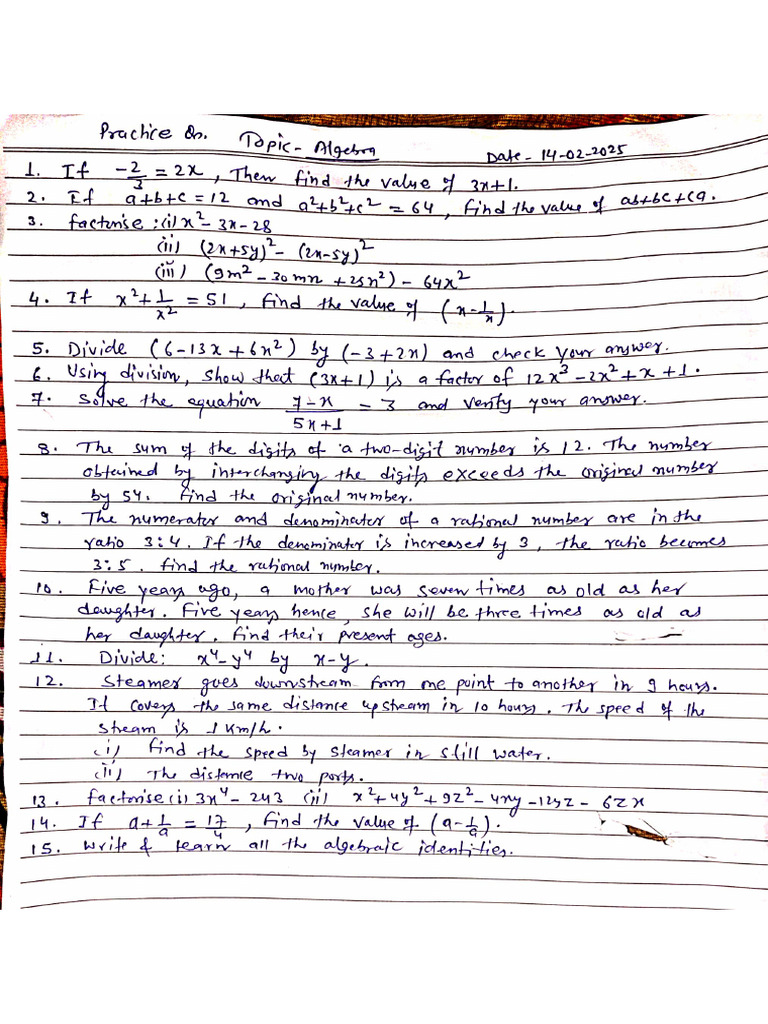 Practice Qn. Topic - Algebra Date - 14-02-2025
1. If -2/3 = 2x, Then find the value of 3x+1.
2. If a+b+c = 12 and a²+b²+c² = 64, find the value of ab+bc+ca.
3. factorise : (i) x² - 3x - 28
(ii) (2x+5y)² - (2x-5y)²
(iii) (9m² - 30mn + 25n²) - 64x²
4. If x² + 1/x² = 51, find the value of (x - 1/x).
5. Divide (6 - 13x + 6x²) by (-3 + 2x) and check your answer.
6. Using division, show that (3x+1) is a factor of 12x³ - 2x² + x + 1.
7. Solve the equation (7-x)/(5x+1) = 3 and verify your answer.
8. The sum of the digits of a two-digit number is 12. The number
obtained by interchanging the digits exceeds the original number
by 54. find the original number.
9. The numerator and denominator of a rational number are in the
ratio 3:4. If the denominator is increased by 3, the ratio becomes
3:5. find the rational number.
10. Five years ago, a mother was seven times as old as her
daughter. Five years hence, she will be three times as old as
her daughter. find their present ages.
11. Divide: x⁴ - y⁴ by x - y.
12. Steamer goes downstream from one point to another in 9 hours.
It covers the same distance upstream in 10 hours. The speed of the
stream is 1 km/h.
(i) find the speed by steamer in still water.
(ii) The distance two ports.
13. factorise (i) 3x⁴ - 243 (ii) x² + 4y² + 9z² - 4xy - 12yz - 6zx
14. If a + 1/a = 17/4, find the value of (a - 1/a).
15. Write & learn all the algebraic identities.